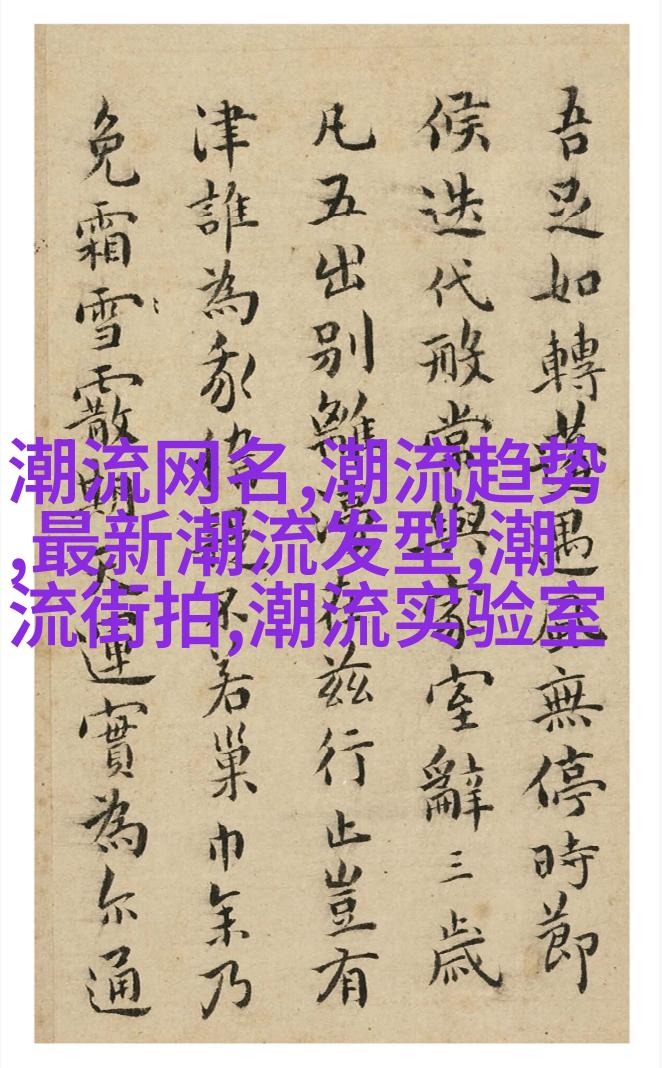 潮流网名,潮流趋势
,最新潮流发型,潮
流街拍,潮流实验室
吾足如轉遇無停時節
候迭代殷常與家室辭三歲
凡五出別離存茲行止豈有
津誰為不若巢巾余乃
免霜雪霰期運實為尔通